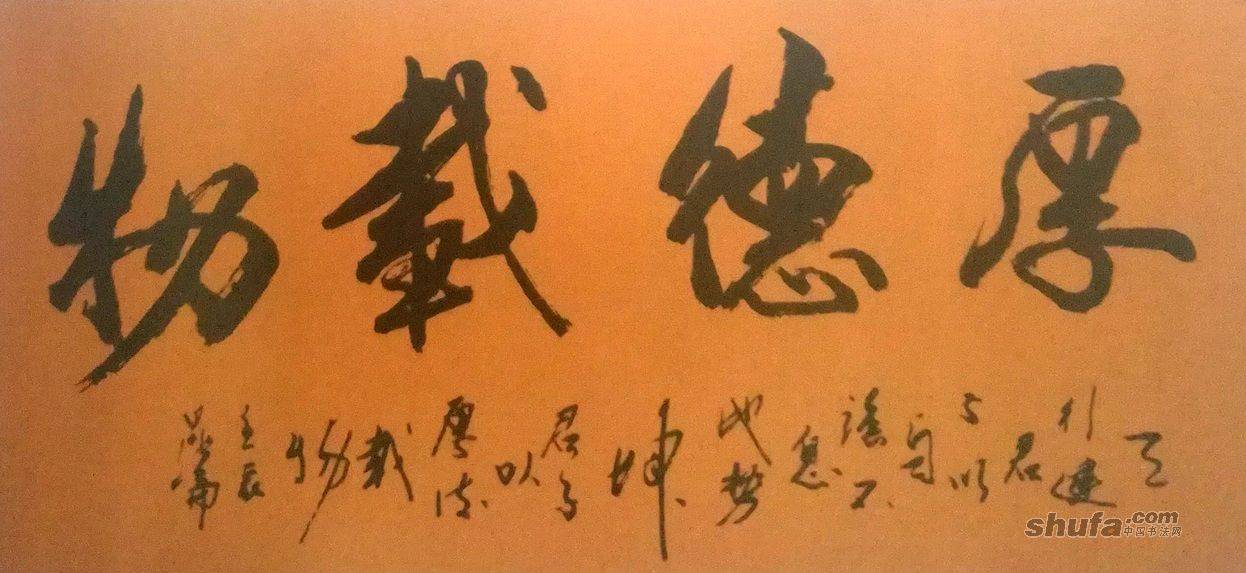 厚德載物
天
行健
君
子以
自
强不
息
地势
坤
君子
以
厚德
載
物
壬辰
shufa.com
中国书法网